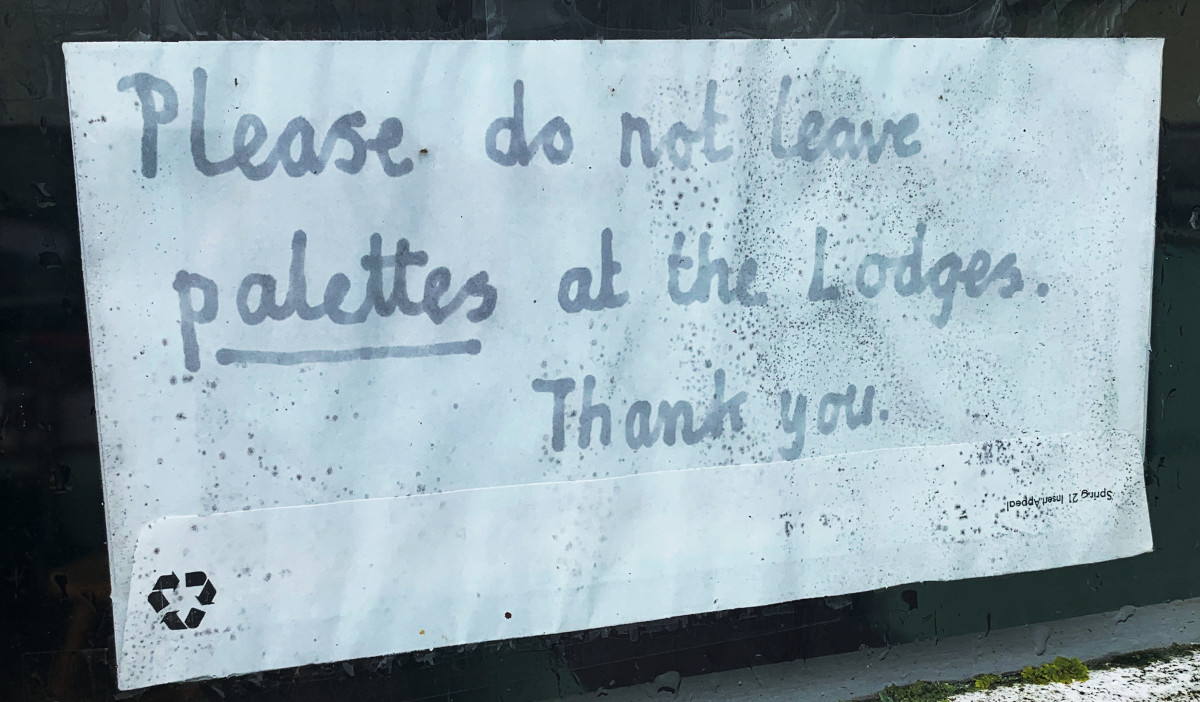 Please do not leave
palettes at the Lodges.
Thank you.
Spring 21 Insert Appeal